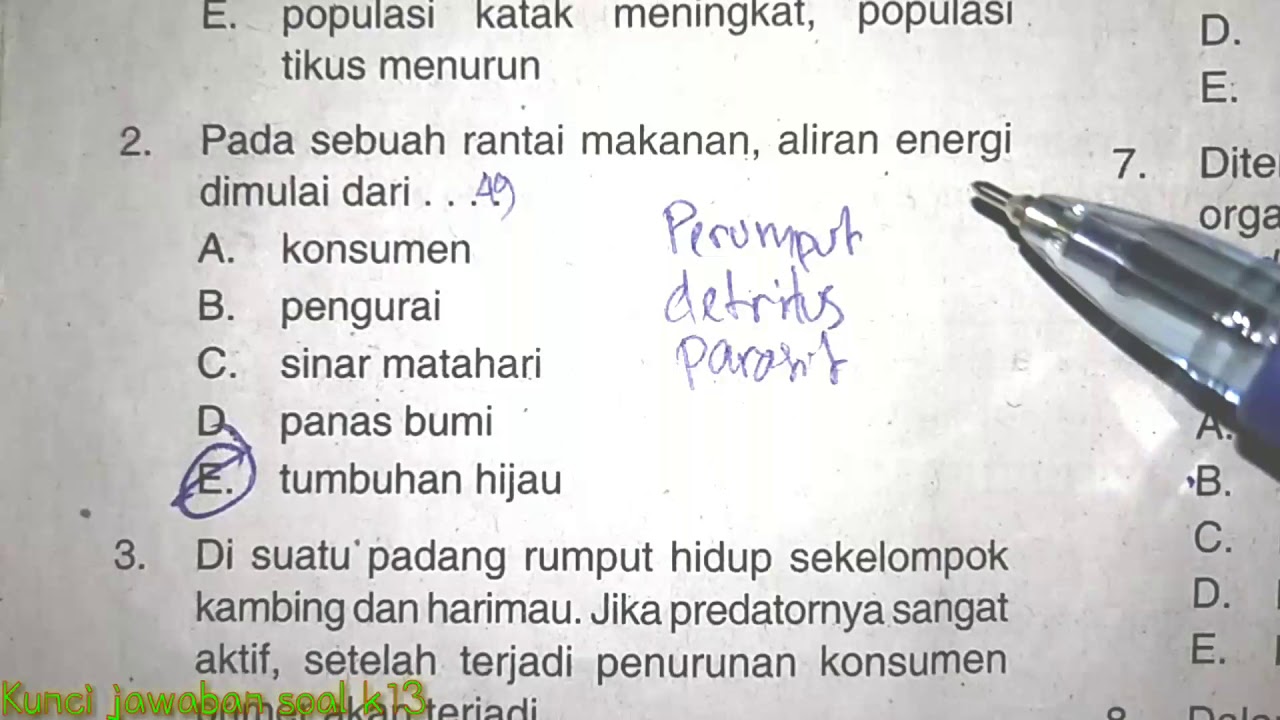 E. populasi katak meningkat, populasi
tikus menurun
2. Pada sebuah rantai makanan, aliran energi
dimulai dari . . . .
A. konsumen
B. pengurai
C. sinar matahari
D. panas bumi
E. tumbuhan hijau
Perumput
detritus
parasit
3. Di suatu padang rumput hidup sekelompok
kambing dan harimau. Jika predatornya sangat
aktif, setelah terjadi penurunan konsumen
akan terjadi
Kunci jawaban soal k13
D.
E.
7. Dite
orga
A.
B.
C.
D.
E.
8.